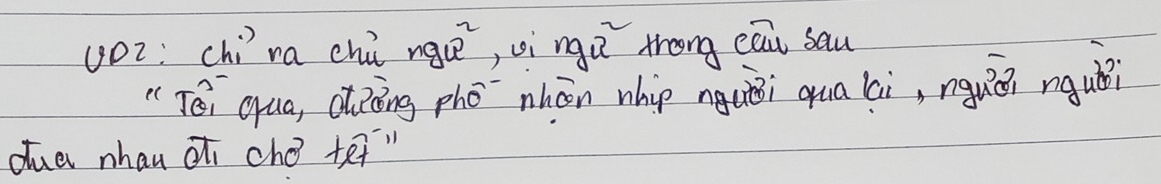 VD2: chỉ ra chủ ngữ, vị ngữ trong câu sau
"Tối qua, đường phố nhộn nhịp người qua lại, người người
đua nhau đi chợ tết"